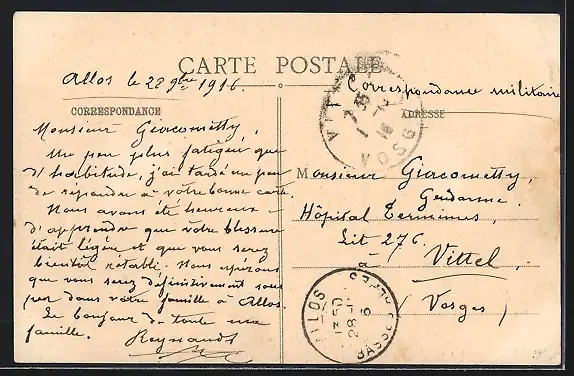 CARTE POSTALE
Allos le 28 9bre 1916.
Correspondance militaire
CORRESPONDANCE
ADRESSE
Monsieur Giacometty,
Un peu plus fatiguée que
d'habitude, j'ai tardé un peu
de répondre à votre bonne carte.
Nous avons été heureux
d'apprendre que votre blessure
était légère et que vous serez
bientôt rétabli. Nous espérons
que vous serez définitivement sous
peu dans votre famille à Allos.
Le bonjour de toute ma
famille.
Reynaud
Monsieur Giacometty,
Gendarme
Hôpital Terminus,
Lit 276.
à
Vittel,
(Vosges)
VITTEL
VOSGES
ALLOS
13 50
28 -11
16
BASSES ALPES